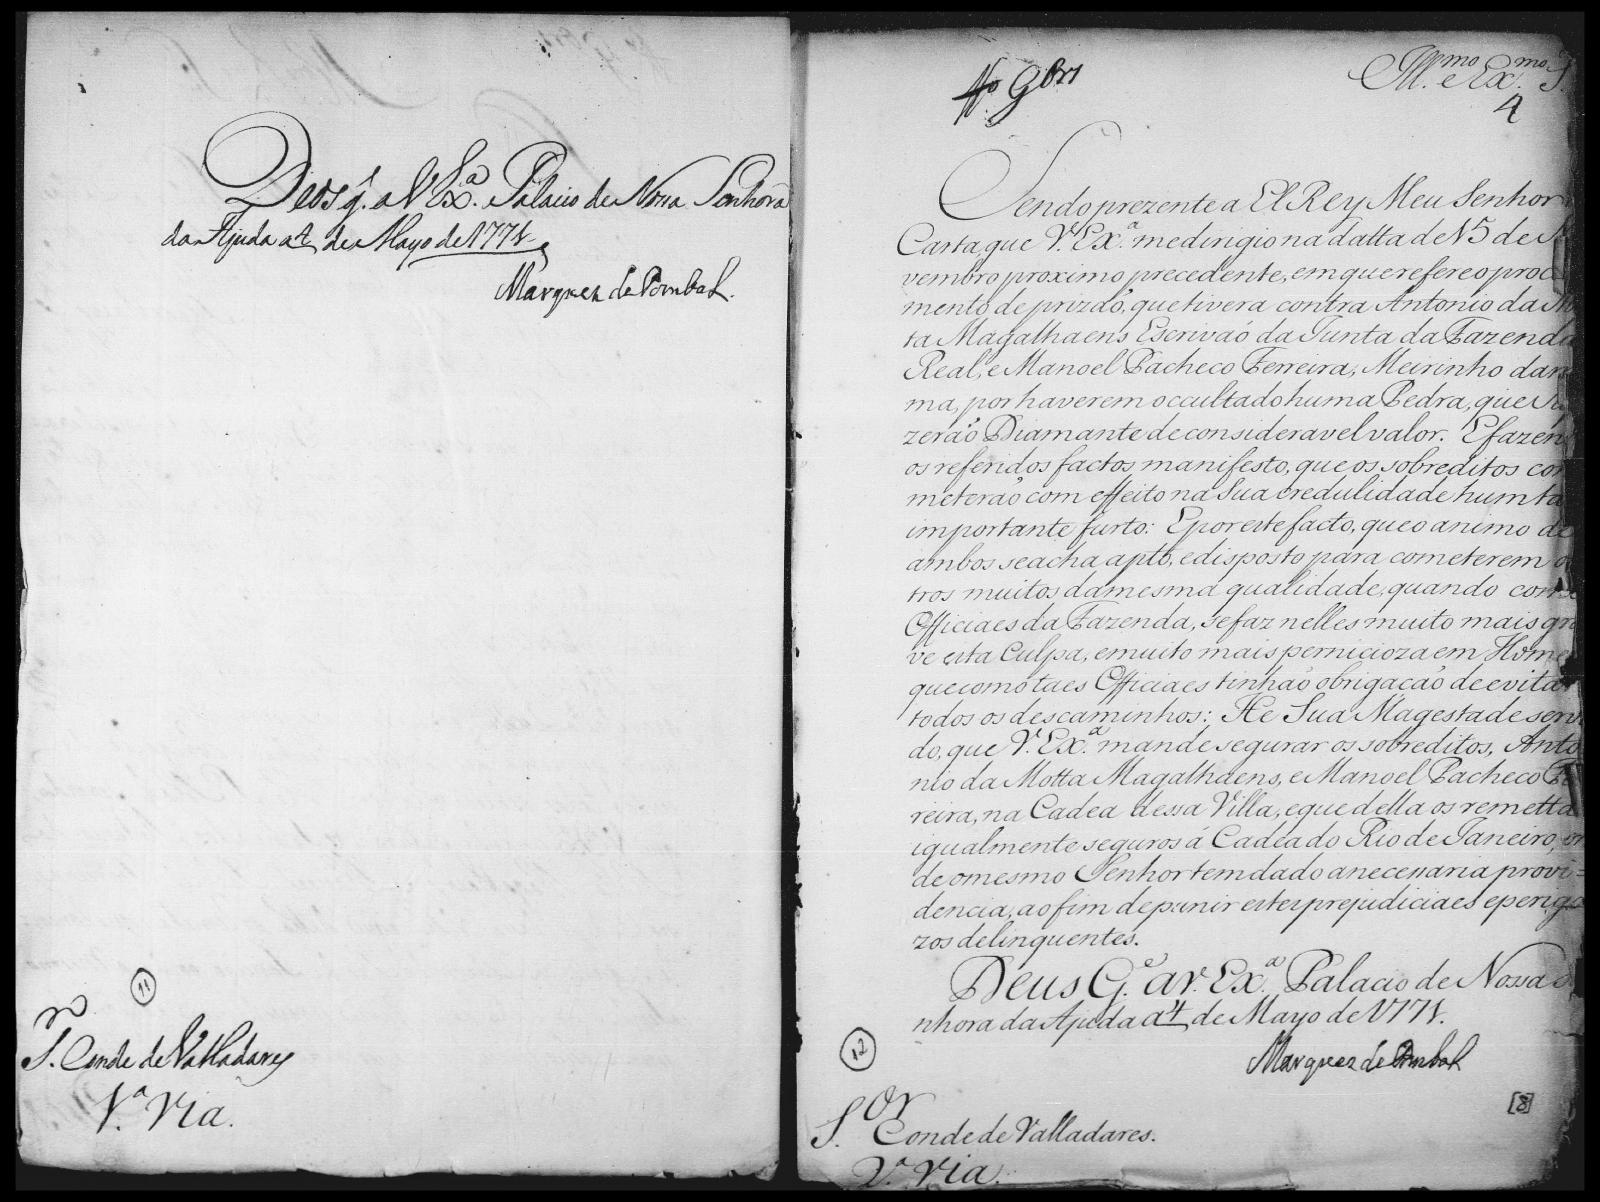 Deos g.e a V Ex.a Palacio de Nossa Senhora
da Ajuda a 4 de Mayo de 1771.
Marquez de Pombal.
11
S.or Conde de Valladares
1.a Via.
Ill.mo e Ex.mo S.
4
Sendo prezente a El Rey Meu Senhor
Carta, que V. Ex.a me dirigio na datta de 15 de
vembro proximo precedente, em que refere o proce
mento de prizaõ, que tivera contra Antonio da Mo
ta Magalhaens Escrivaõ da Junta da Fazenda
Real, e Manoel Pacheco Ferreira, Meirinho da m
ma, por haverem occultado huma Pedra, que
zeraõ Diamante de consideravel valor. E fazen
os referidos factos manifesto, que os sobreditos co
meteraõ com effeito na sua credulidade hum ta
importante furto: E por este facto, que o animo de
ambos se acha apto, e disposto para cometerem o
tros muitos da mesma qualidade, quando com
Officiaes da Fazenda, se faz nelles muito mais gra
ve esta Culpa, e muito mais pernicioza em Home
que como taes Officiaes tinhaõ obrigaçaõ de evitar
todos os descaminhos: He Sua Magestade servi
do, que V. Ex.a mande segurar os sobreditos, Anto
nio da Motta Magalhaens, e Manoel Pacheco Fe
reira, na Cadea dessa Villa, e que della os remetta
igualmente seguros á Cadea do Rio de Janeiro, on
de o mesmo Senhor tem dado a necessaria provi=
dencia, ao fim de punir estes prejudiciaes e perigo
zos delinquentes.
Deus G.e a V. Ex.a Palacio de Nossa S
nhora da Ajuda a 4 de Mayo de 1771.
Marquez de Pombal
12
[8]
S.or Conde de Valladares.
1.a Via.